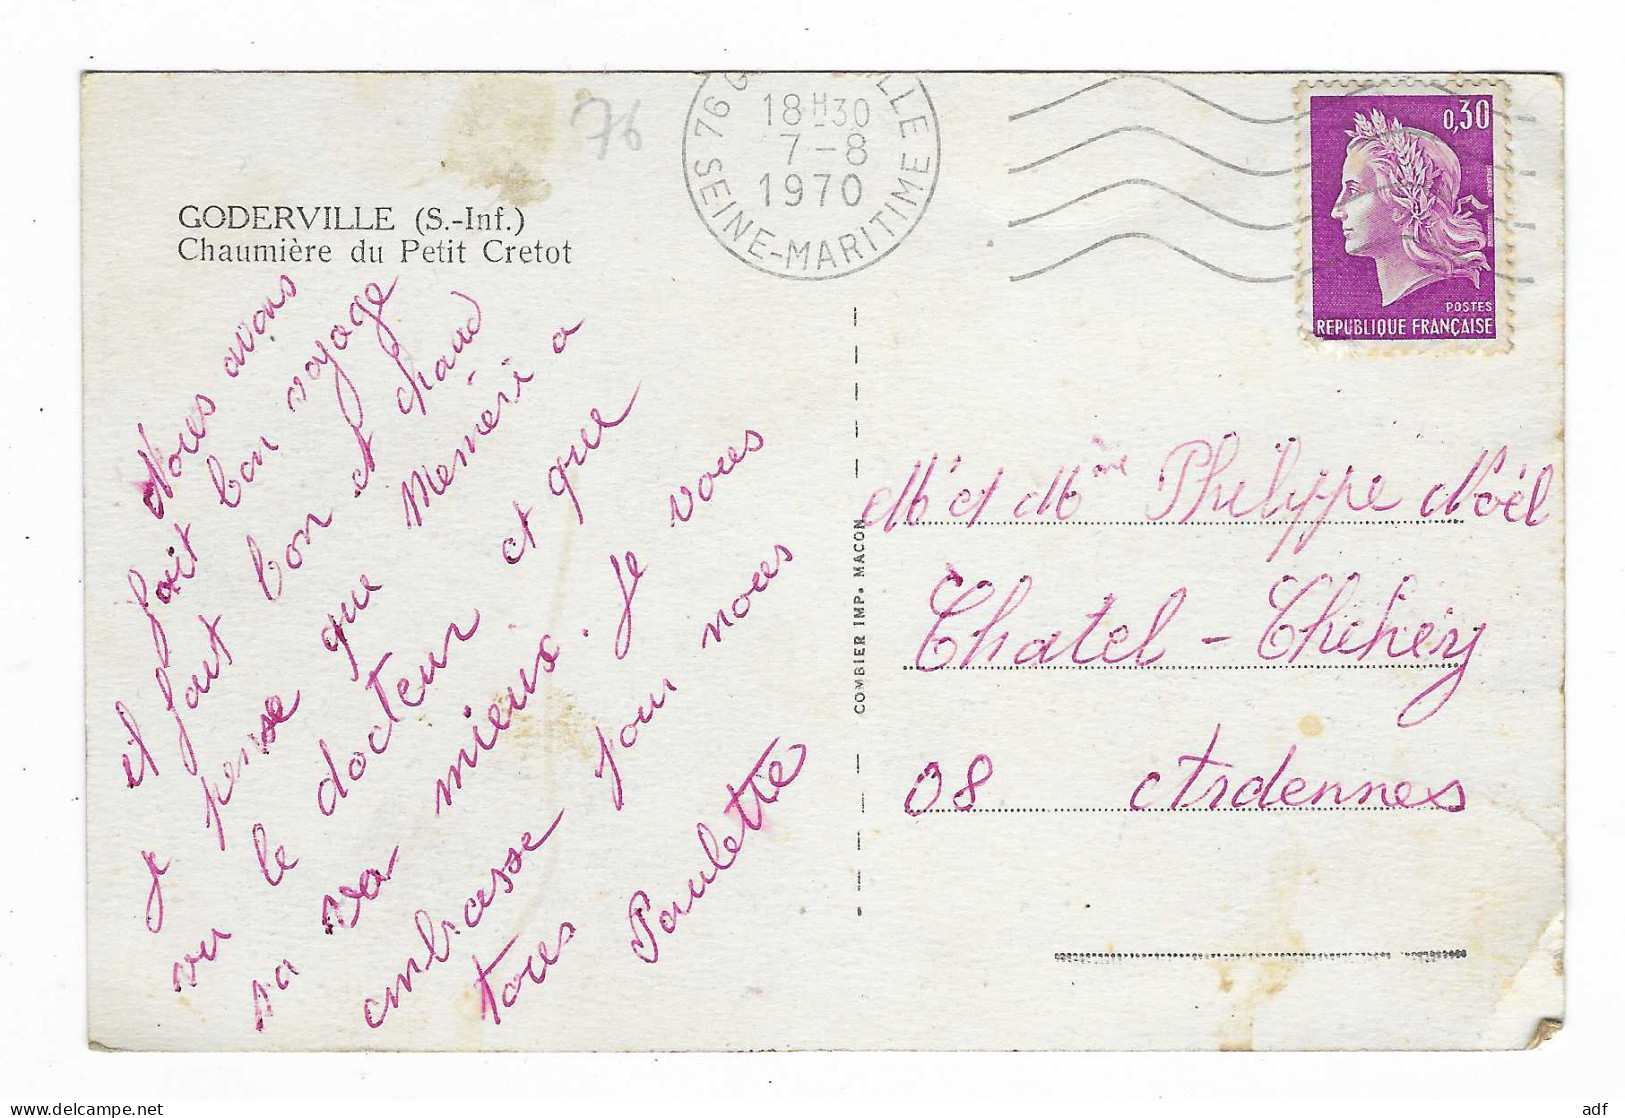 76
76 G ILLE
18H30
7-8
1970
SEINE-MARITIME
0,30
POSTES
REPUBLIQUE FRANÇAISE
GODERVILLE (S.-Inf.)
Chaumière du Petit Cretot
Nous avons
fait bon voyage
il faut bon et chaud
je pense que Meméré a
vu le docteur et que
sa va mieux. Je vous
embrasse pour nous
tous Paulette
COMBIER IMP. MACON
Mr et Mme Philippe Noël
Chatel-Chéhéry
08 Ardennes
adf